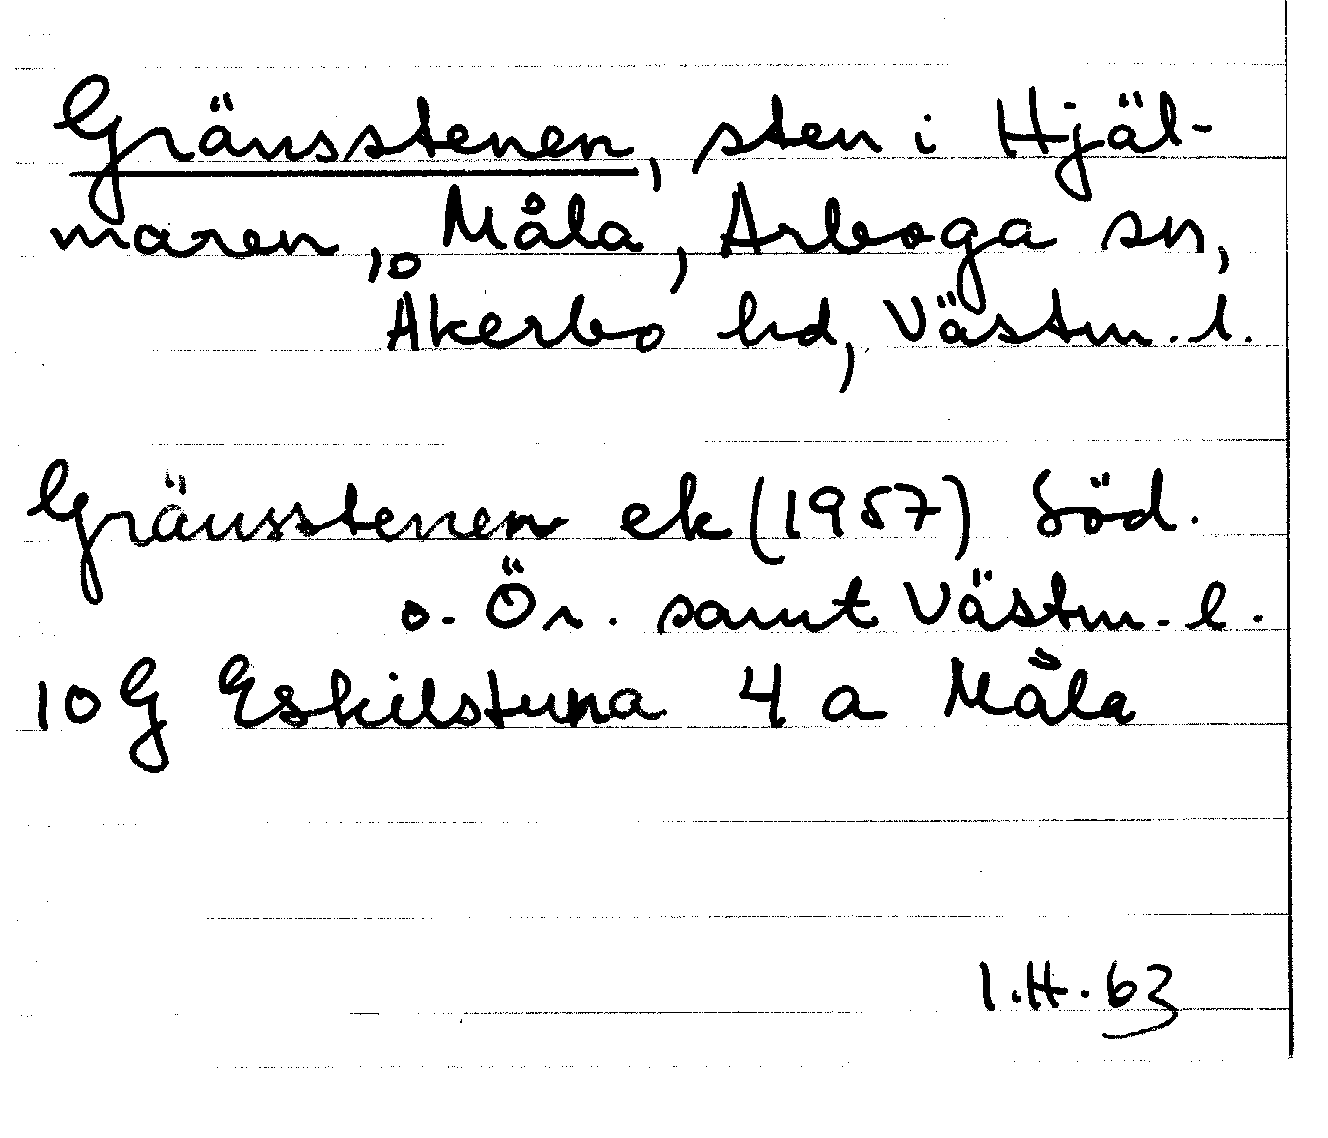 Gränsstenen, sten i Hjäl-
maren, Måla, Arboga sn,
Åkerbo hd, Västm. l.
Gränsstenen ek (1957) Söd.
o. Ör. samt Västm. l.
10G Eskilstuna 4 a Måla
I.H. 63